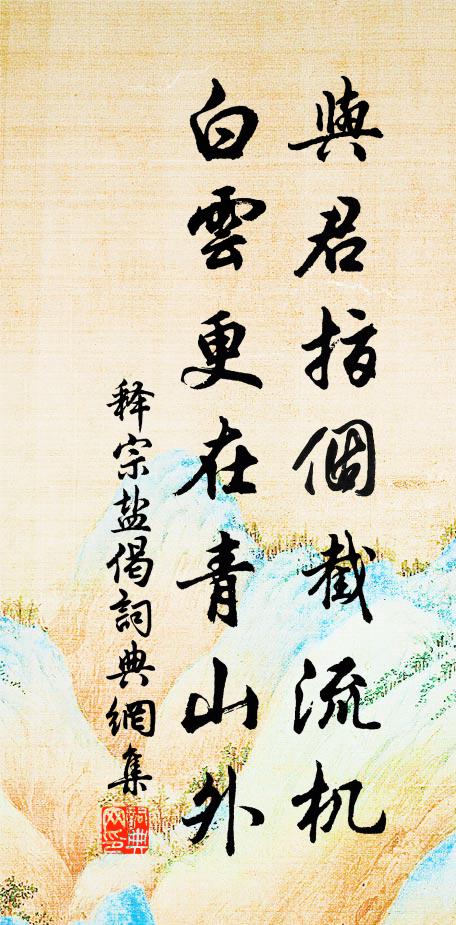 與君指個截流机
白雲更在青山外
释宗盐偈詞典網集
詞典网印